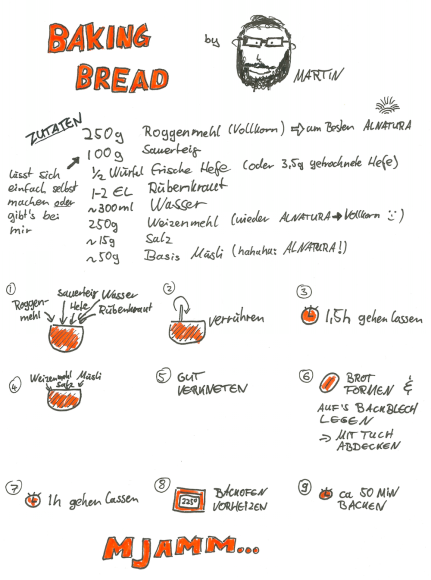 BAKING
BREAD
by
MARTIN
ZUTATEN
250g Roggenmehl (Vollkorn) => am Besten ALNATURA
100g Sauerteig
1/2 Würfel Frische Hefe (oder 3,5g getrocknete Hefe)
1-2 EL Rübenkraut
~300ml Wasser
250g Weizenmehl (wieder ALNATURA → Vollkorn :-))
~15g Salz
~50g Basis Müsli (hahaha: ALNATURA!)
lässt sich
einfach selbst
machen oder
gibt's bei
mir
① Roggen-
mehl
Sauerteig
Hefe
Wasser
Rübenkraut
② verrühren
③ 1,5h gehen lassen
④ Weizenmehl Müsli
Salz
⑤ GUT
VERKNETEN
⑥ BROT
FORMEN &
AUF'S BACKBLECH
LEGEN
=> MIT TUCH
ABDECKEN
⑦ 1h gehen lassen
⑧ 225° BACKOFEN
VORHEIZEN
⑨ ca 50 MIN
BACKEN
MJAMM...